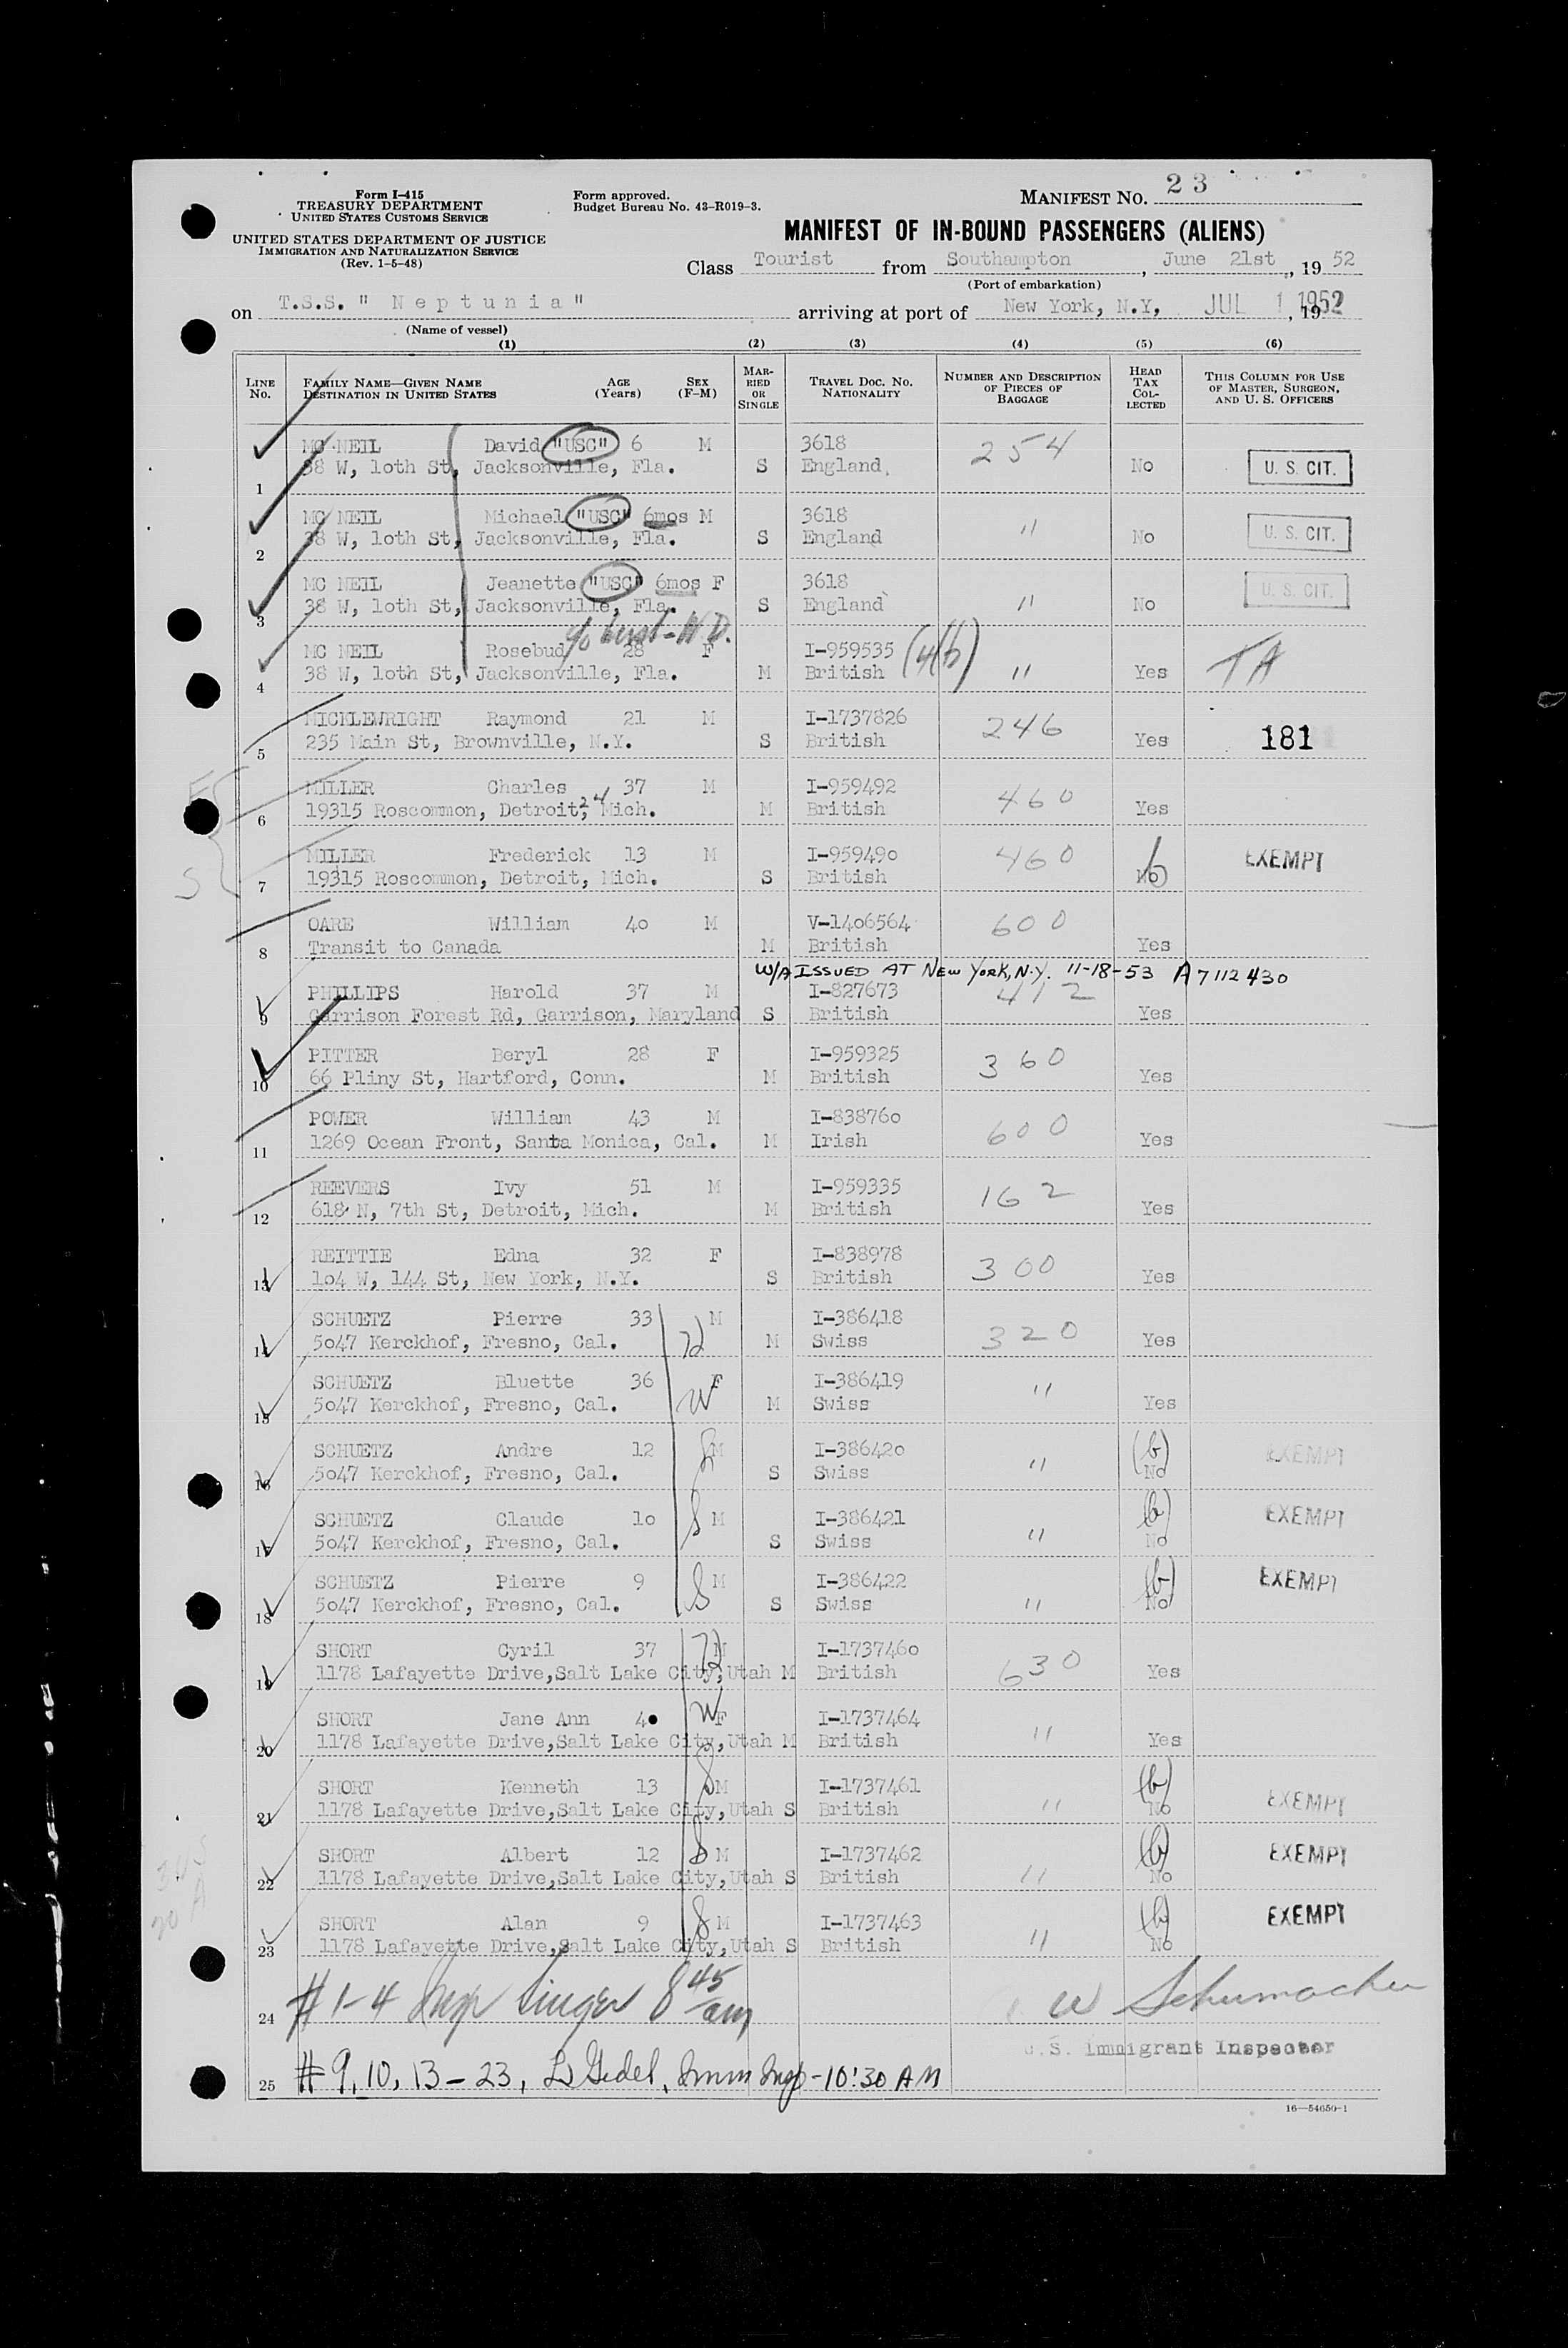 Form I-415
TREASURY DEPARTMENT
UNITED STATES CUSTOMS SERVICE
UNITED STATES DEPARTMENT OF JUSTICE
IMMIGRATION AND NATURALIZATION SERVICE
(Rev. 1-5-48)
Form approved.
Budget Bureau No. 43-R019-3.
MANIFEST NO. 23
MANIFEST OF IN-BOUND PASSENGERS (ALIENS)
Class Tourist from Southampton, June 21st, 19 52
(Port of embarkation)
on T.S.S. " N e p t u n i a " arriving at port of New York, N.Y, JUL 1 1952, 19
(Name of vessel)
(1) (2) (3) (4) (5) (6)
LINE No. FAMILY NAME—GIVEN NAME DESTINATION IN UNITED STATES AGE (Years) SEX (F-M) MARRIED OR SINGLE TRAVEL DOC. NO. NATIONALITY NUMBER AND DESCRIPTION OF PIECES OF BAGGAGE HEAD TAX COLLECTED THIS COLUMN FOR USE OF MASTER, SURGEON, AND U. S. OFFICERS
MC NEIL David "USC" 6 M 3618 254
1 38 W, loth St, Jacksonville, Fla. S England, No U. S. CIT.
MC NEIL Michael "USC" 6mos M 3618
2 38 W, loth St, Jacksonville, Fla. S England " No U. S. CIT.
MC NEIL Jeanette "USC" 6mos F 3618
3 38 W, loth St, Jacksonville, Fla. S England " No U. S. CIT.
MC NEIL Rosebud 28 F I-959535 (4(b)
4 38 W, loth St, Jacksonville, Fla. M British " Yes TA
MICKLEWRIGHT Raymond 21 M I-1737826 246
5 235 Main St, Brownville, N.Y. S British Yes 181
MILLER Charles 37 M I-959492 460
6 19315 Roscommon, Detroit, 24 Mich. M British Yes
MILLER Frederick 13 M I-959490 460 EXEMPT
7 19315 Roscommon, Detroit, Mich. S British No b
OARE William 40 M V-1406564 600
8 Transit to Canada M British Yes
W/A ISSUED AT NEW YORK, N.Y. 11-18-53 A7112430
PHILLIPS Harold 37 M I-827673 412
9 Garrison Forest Rd, Garrison, Maryland S British Yes
PITTER Beryl 28 F I-959325 360
10 66 Pliny St, Hartford, Conn. M British Yes
POWER William 43 M I-838760 600
11 1269 Ocean Front, Santa Monica, Cal. M Irish Yes
REEVERS Ivy 51 M I-959335 162
12 618 N, 7th St, Detroit, Mich. M British Yes
REITTIE Edna 32 F I-838978 300
13 lo4 W, 144 St, New York, N.Y. S British Yes
SCHUETZ Pierre 33 M I-386418 320
14 5o47 Kerckhof, Fresno, Cal. M Swiss Yes
SCHUETZ Bluette 36 W F I-386419 "
15 5o47 Kerckhof, Fresno, Cal. M Swiss Yes
SCHUETZ Andre 12 M I-386420 (b) EXEMPT
16 5o47 Kerckhof, Fresno, Cal. S Swiss " No
SCHUETZ Claude lo S M I-386421 (b) EXEMPT
17 5o47 Kerckhof, Fresno, Cal. S Swiss " No
SCHUETZ Pierre 9 S M I-386422 (b) EXEMPT
18 5o47 Kerckhof, Fresno, Cal. S Swiss " No
SHORT Cyril 37 M I-1737460 630
19 1178 Lafayette Drive,Salt Lake City,Utah M British Yes
SHORT Jane Ann 40 W F I-1737464
20 1178 Lafayette Drive,Salt Lake City,Utah M British " Yes
SHORT Kenneth 13 S M I-1737461 (b) EXEMPT
21 1178 Lafayette Drive,Salt Lake City,Utah S British " No
SHORT Albert 12 S M I-1737462 (b) EXEMPT
22 1178 Lafayette Drive,Salt Lake City,Utah S British " No
SHORT Alan 9 S M I-1737463 (b) EXEMPT
23 1178 Lafayette Drive,Salt Lake City,Utah S British " No
24 # 1-4 Insp Singer 8 45 am W Schumacher
U.S. Immigrant Inspector
25 # 9, 10, 13 - 23, Imm Insp - 10:30 AM
16—54650-1